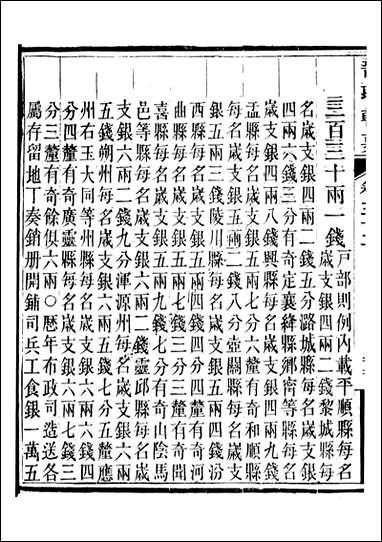 三百三十兩一錢
戶部則例內載平順縣每名
歲支銀四兩二錢黎城縣每
名歲支銀四兩二錢五分潞城縣每名歲支銀
四兩六錢三分有奇定襄絳縣鄉甯等縣每名
歲支銀四兩八錢興縣每名歲支銀四兩九錢
盂縣每名歲支銀五兩七分六釐有奇和順縣
每名歲支銀五兩二錢八分壺關縣每名歲支
銀五兩三錢陵川縣每名歲支銀五兩四錢汾
西縣每名歲支銀五兩四錢四分四釐有奇河
曲縣每名歲支銀五兩七錢三分三釐有奇聞
喜縣每名歲支銀五兩九錢七分有奇山陰馬
邑等縣每名歲支銀六兩二錢靈邱縣每名歲
支銀六兩二錢九分渾源州每名歲支銀六兩
五錢朔州每名歲支銀六兩五錢七分五釐應
州右玉大同等州縣每名歲支銀六兩六錢四
分四釐有奇廣靈縣每名歲支銀六兩七錢三
分三釐有奇餘俱六兩〇歷年布政司造送各
屬存留地丁奏銷册開鋪司兵工食銀一萬五